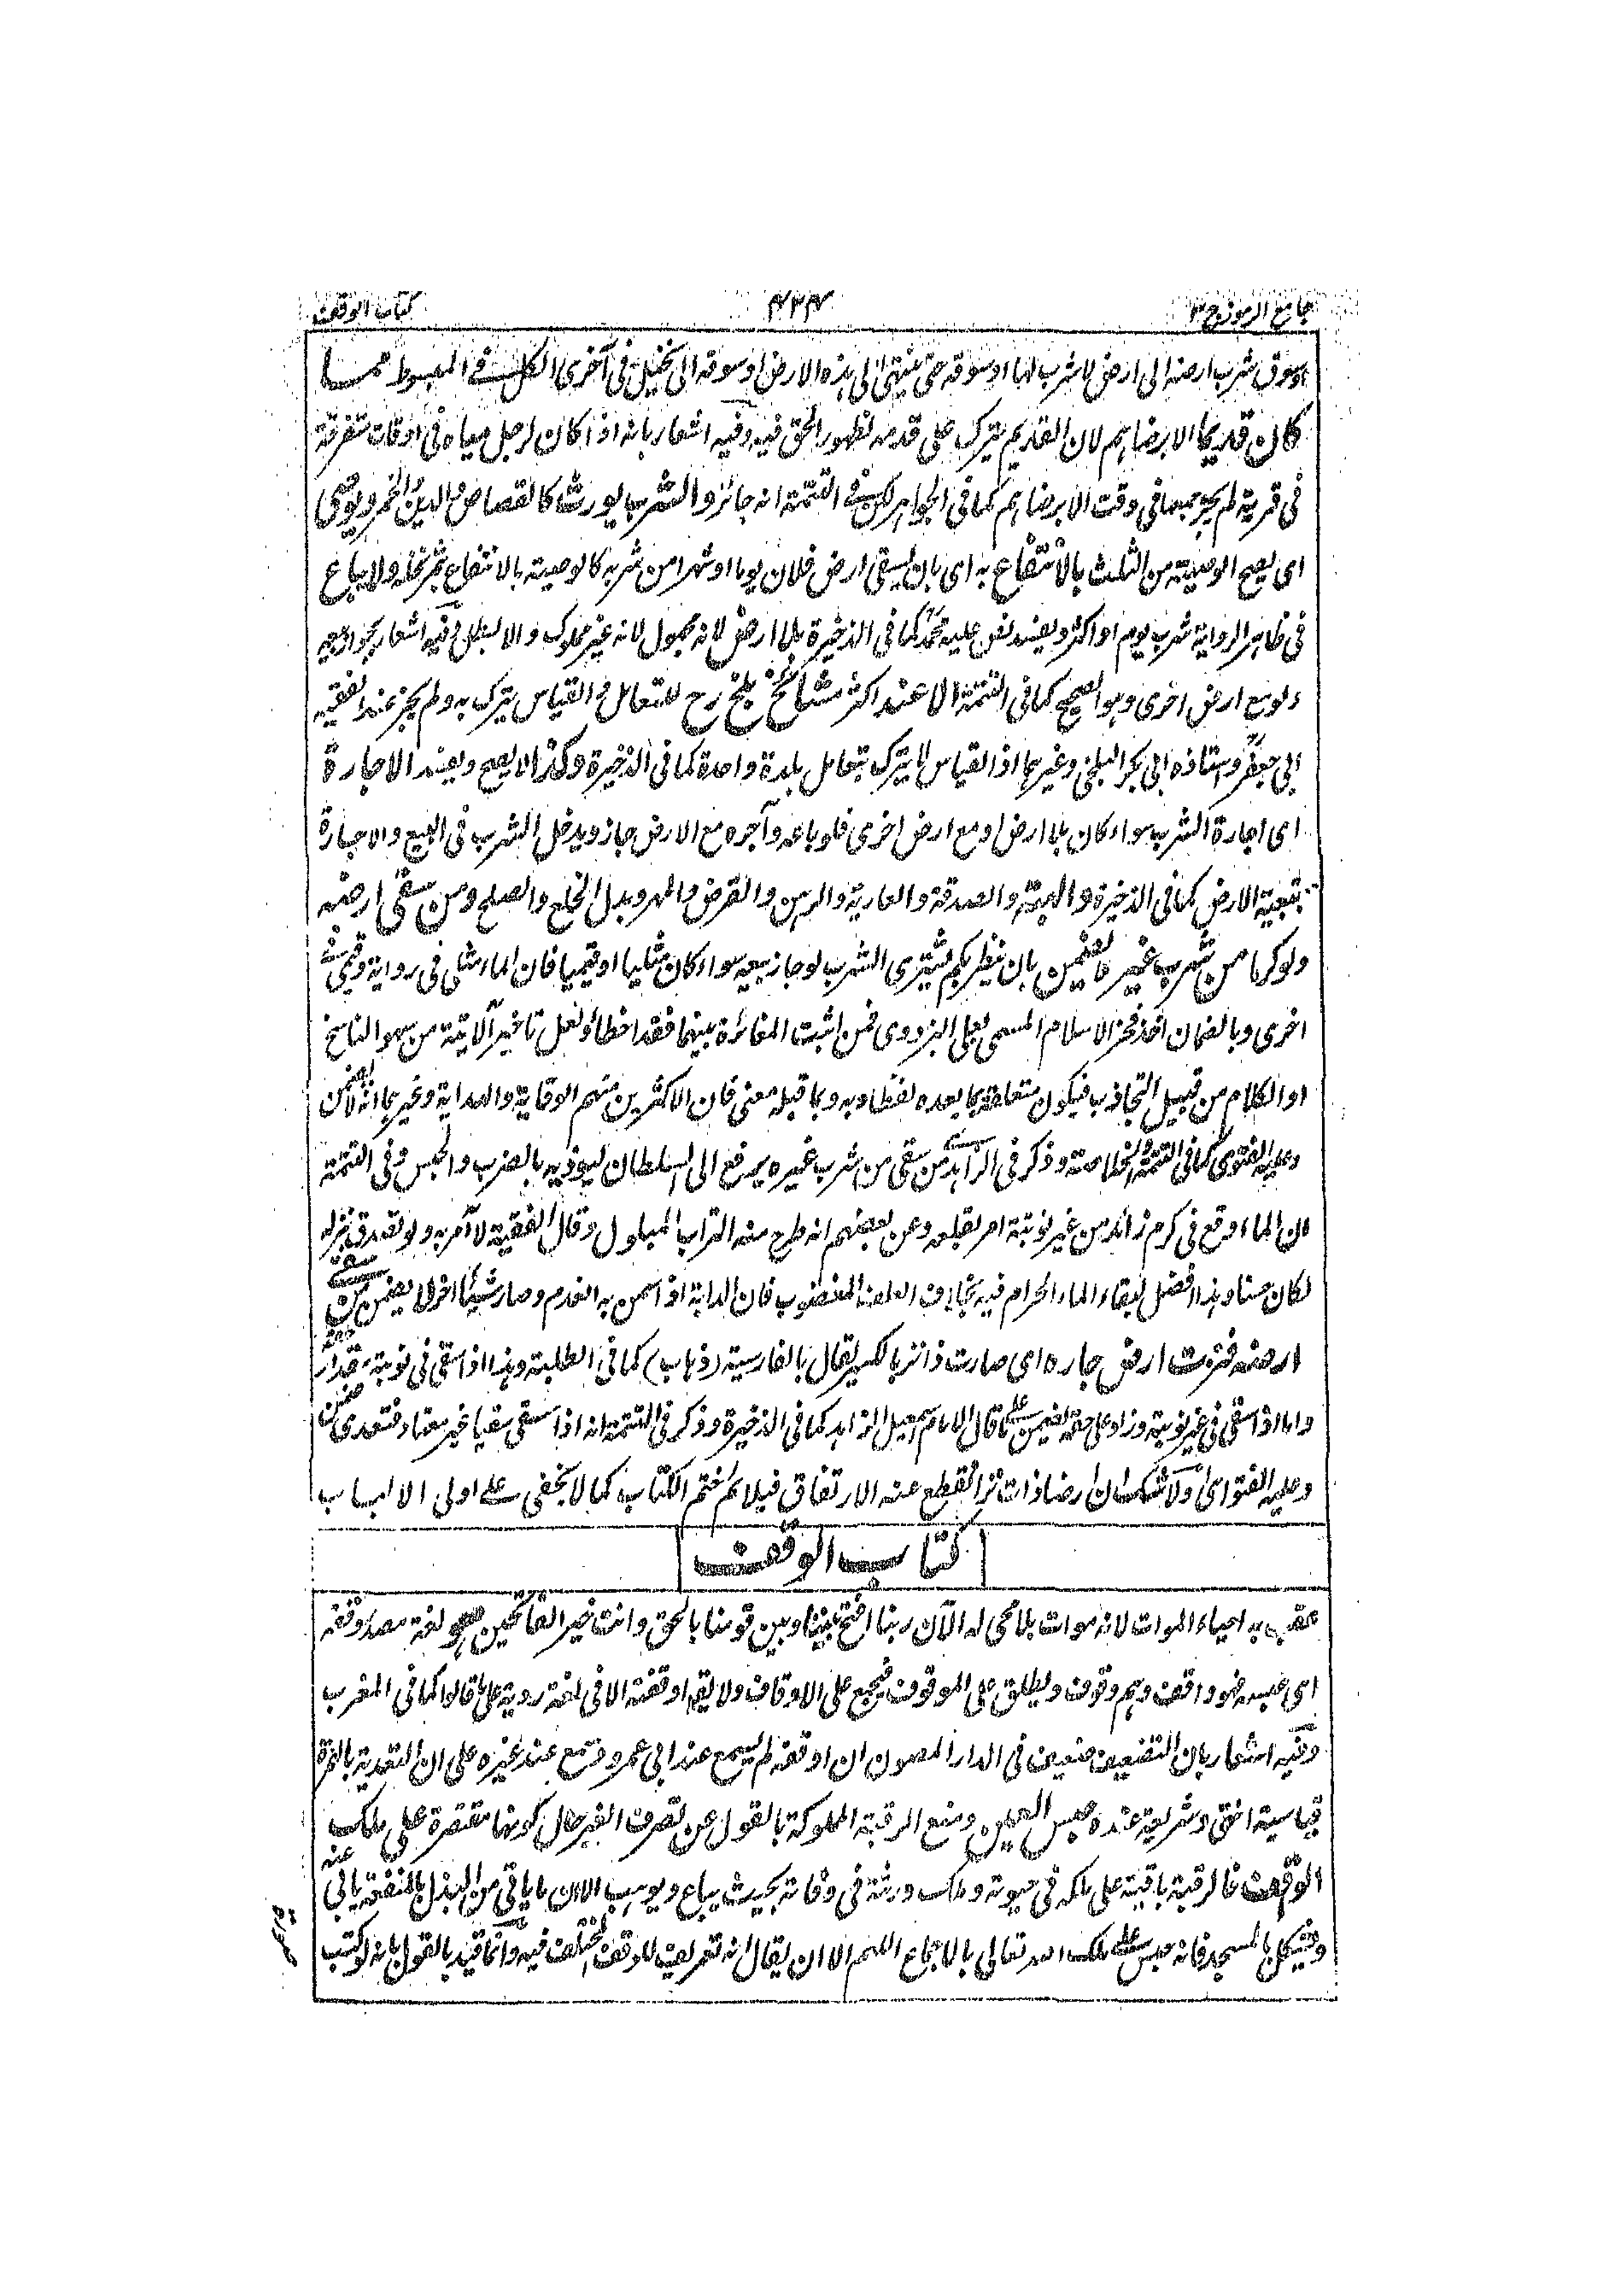 جامع الرموز ج ٣ ٤٣٤ كتاب الوقف
او سوق شرب ارضه الى ارض لا شرب لها او سوقه حتى ينتهى الى هذه الارض او سوقه الى نخيل فى آخرى الكل فى المبسوط مما
كان قديما الا برضاهم لان القديم يترك على قدمه لظهور الحق فيه وفيه اشعار بانه اذا كان لرجل مياه فى اوقات متفرقة
فى قرية لم يجز جمعها فى وقت الا برضاهم كما فى الجواهر لكن فى التتمة انه جائز والشرب يورث كالقصاص والدين والخمر ويوصى
اى يصح الوصية من الثلث بالانتفاع به اى بان يسقى ارض فلان يوما او شهرا من شربه كالوصية بالانتفاع بثمر نخله ولا يباع
فى ظاهر الرواية شرب يوم او اكثر ويفسد نص عليه محمد كما فى الذخيرة بلا ارض لانه مجهول لانه غير مملوك والا لبطل وفيه اشعار بجواز بيعه
ولو مع ارض اخرى وهو الصحيح كما فى التتمة الا عند اكثر مشائخ بلخ رح للتعامل والقياس يترك به ولم يجز عند الفقيه
ابى جعفر واستاذه ابى بكر البلخى وغيرهما اذ القياس لا يترك بتعامل بلدة واحدة كما فى الذخيرة وكذا لا يصح ويفسد الاجارة
اى اجارة الشرب سواء كان بلا ارض او مع ارض اخرى فلو باعه وآجره مع الارض جاز ويدخل الشرب فى البيع والاجارة
بتبعية الارض كما فى الذخيرة والهبة والصدقة والعارية والرهن والقرض والمهر وبدل الخلع والصلح ومن سقى ارضه
ولو كرما من شرب غيره يضمن بان ينظر بكم يشترى الشرب لو جاز بيعه سواء كان مثليا او قيميا فان الماء مثلى فى رواية وقيمى فى
اخرى وبالضمان اخذ فخر الاسلام المسمى بعلى البزدوى فمن اثبت المغائرة بينهما فقد اخطأ ولعل تاخير الآتية من سهو الناسخ
او الكلام من قبيل التجاذب فيكون متعلقة بما بعده لفظا وبه وبما قبله معنى فان الاكثرين منهم الوقاية والهداية وغيرهما انه لا يضمن
وعليه الفتوى كما فى التتمة والخلاصة وذكر فى الزاهدى من سقى من شرب غيره يرفع الى السلطان ليؤذيه بالضرب والحبس وفى التتمة
ان الماء وقع فى كرم زائد من غير نوبتة امر بقلعه وعن بعضهم انه طرح منه التراب المبلول وقال الفقيه لا آمر به ولو تصدق بنزله
لكان حسنا وهذا افضل لبقاء الماء الحرام فيه بخلاف العلف المغصوب فان الدابة اذا سمن به انعدم وصار شيئا اخر لا يضمن من سقى
ارضه فنزت ارض جاره اى صارت ذا نز بالكسر يقال بالفارسية (زهاب) كما فى الطلبة وهذا اذا سقى فى نوبته مقدار حقه
واما اذا سقى فى غير نوبته وزاد على حقه يضمن على ما قال الامام اسمعيل الزاهد كما فى الذخيرة وذكر فى التتمة انه اذا سقى سقيا غير معتاد فتعدى ضمن
وعليه الفتوى ولا شك ان ارضا ذات نز انقطع عنه الارتفاق فيلائم ختم الكتاب كما لا يخفى على اولى الالباب
كتاب الوقف
عقب به احياء الموات لانه موات بلا محى له الآن ربنا افتح بيننا وبين قومنا بالحق وانت خير الفاتحين هو لغة مصدر وقفه
اى حبسه فهو واقف وهم وقوف ويطلق على الموقوف فيجمع على الاوقاف ولا يقال اوقفته الا فى لغة ردية على ما قالوا كما فى المغرب
وفيه اشعار بان التضعيف ضعيف فى الدار المصون ان اوقفه لم يسمع عند ابى عمرو وسمع عند غيره على ان التعدية بالهمزة
قياسية انتهى وشريعة عنده حبس العين ومنع الرقبة المملوكة بالقول عن تصرف الغير حال كونها مقتصرة على ملك
الوقف فالرقبة باقية على ملكه فى حيوته وملك ورثة فى وفاته بحيث يباع ويوهب الا ان ما ياتى من البذل بالمنفعة يابى عنه
ويشكل بالمسجد فانه حبس على ملك الله تعالى بالاجماع اللهم الا ان يقال انه تعريف للوقف المختلف فيه وانما قيد بالقول بانه لو كتب
صورة